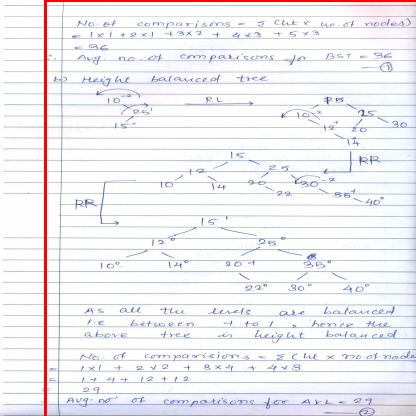 No. of comparisons = Σ (ht x no. of nodes)
= 1x1 + 2x1 + 3x2 + 4x3 + 5x3
= 36
∴ Avg. no. of comparisons for BST = 36
①
b) Height balanced tree
10⁻² RL 15
25¹ 10⁻² 25
15⁰ 12¹ 20 30
14
RR
15
12 25
10 14 20 30⁻²
22 35⁻¹
40⁰
RR
15¹
12⁰ 25⁰
10⁰ 14⁰ 20⁻¹ 35⁰
22⁰ 30⁰ 40⁰
As all the levels are balanced
i.e between -1 to 1, hence the
above tree is height balanced
No. of comparisions = Σ (ht x no of node
= 1x1 + 2x2 + 3x4 + 4x3
= 1 + 4 + 12 + 12
= 29
∴ Avg. no of comparisons for AVL = 29
②